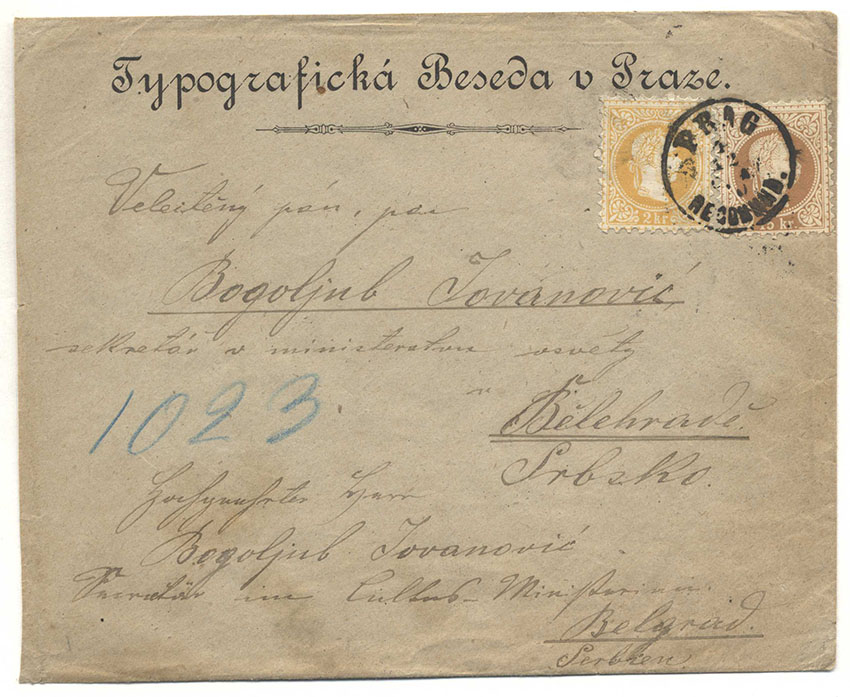 Typografická Beseda v Praze.
2 kr
PRAG
RECOMMAND.
15 kr.
Velectěný pán, pan
Bogoljub Jovanović,
sekretář v ministerstvu osvěty
v
Bělehradě.
Srbsko.
1023.
Hochgeehrter Herr
Bogoljub Jovanović
Secretär im Cultus-Ministerium.
Belgrad.
Serbien.